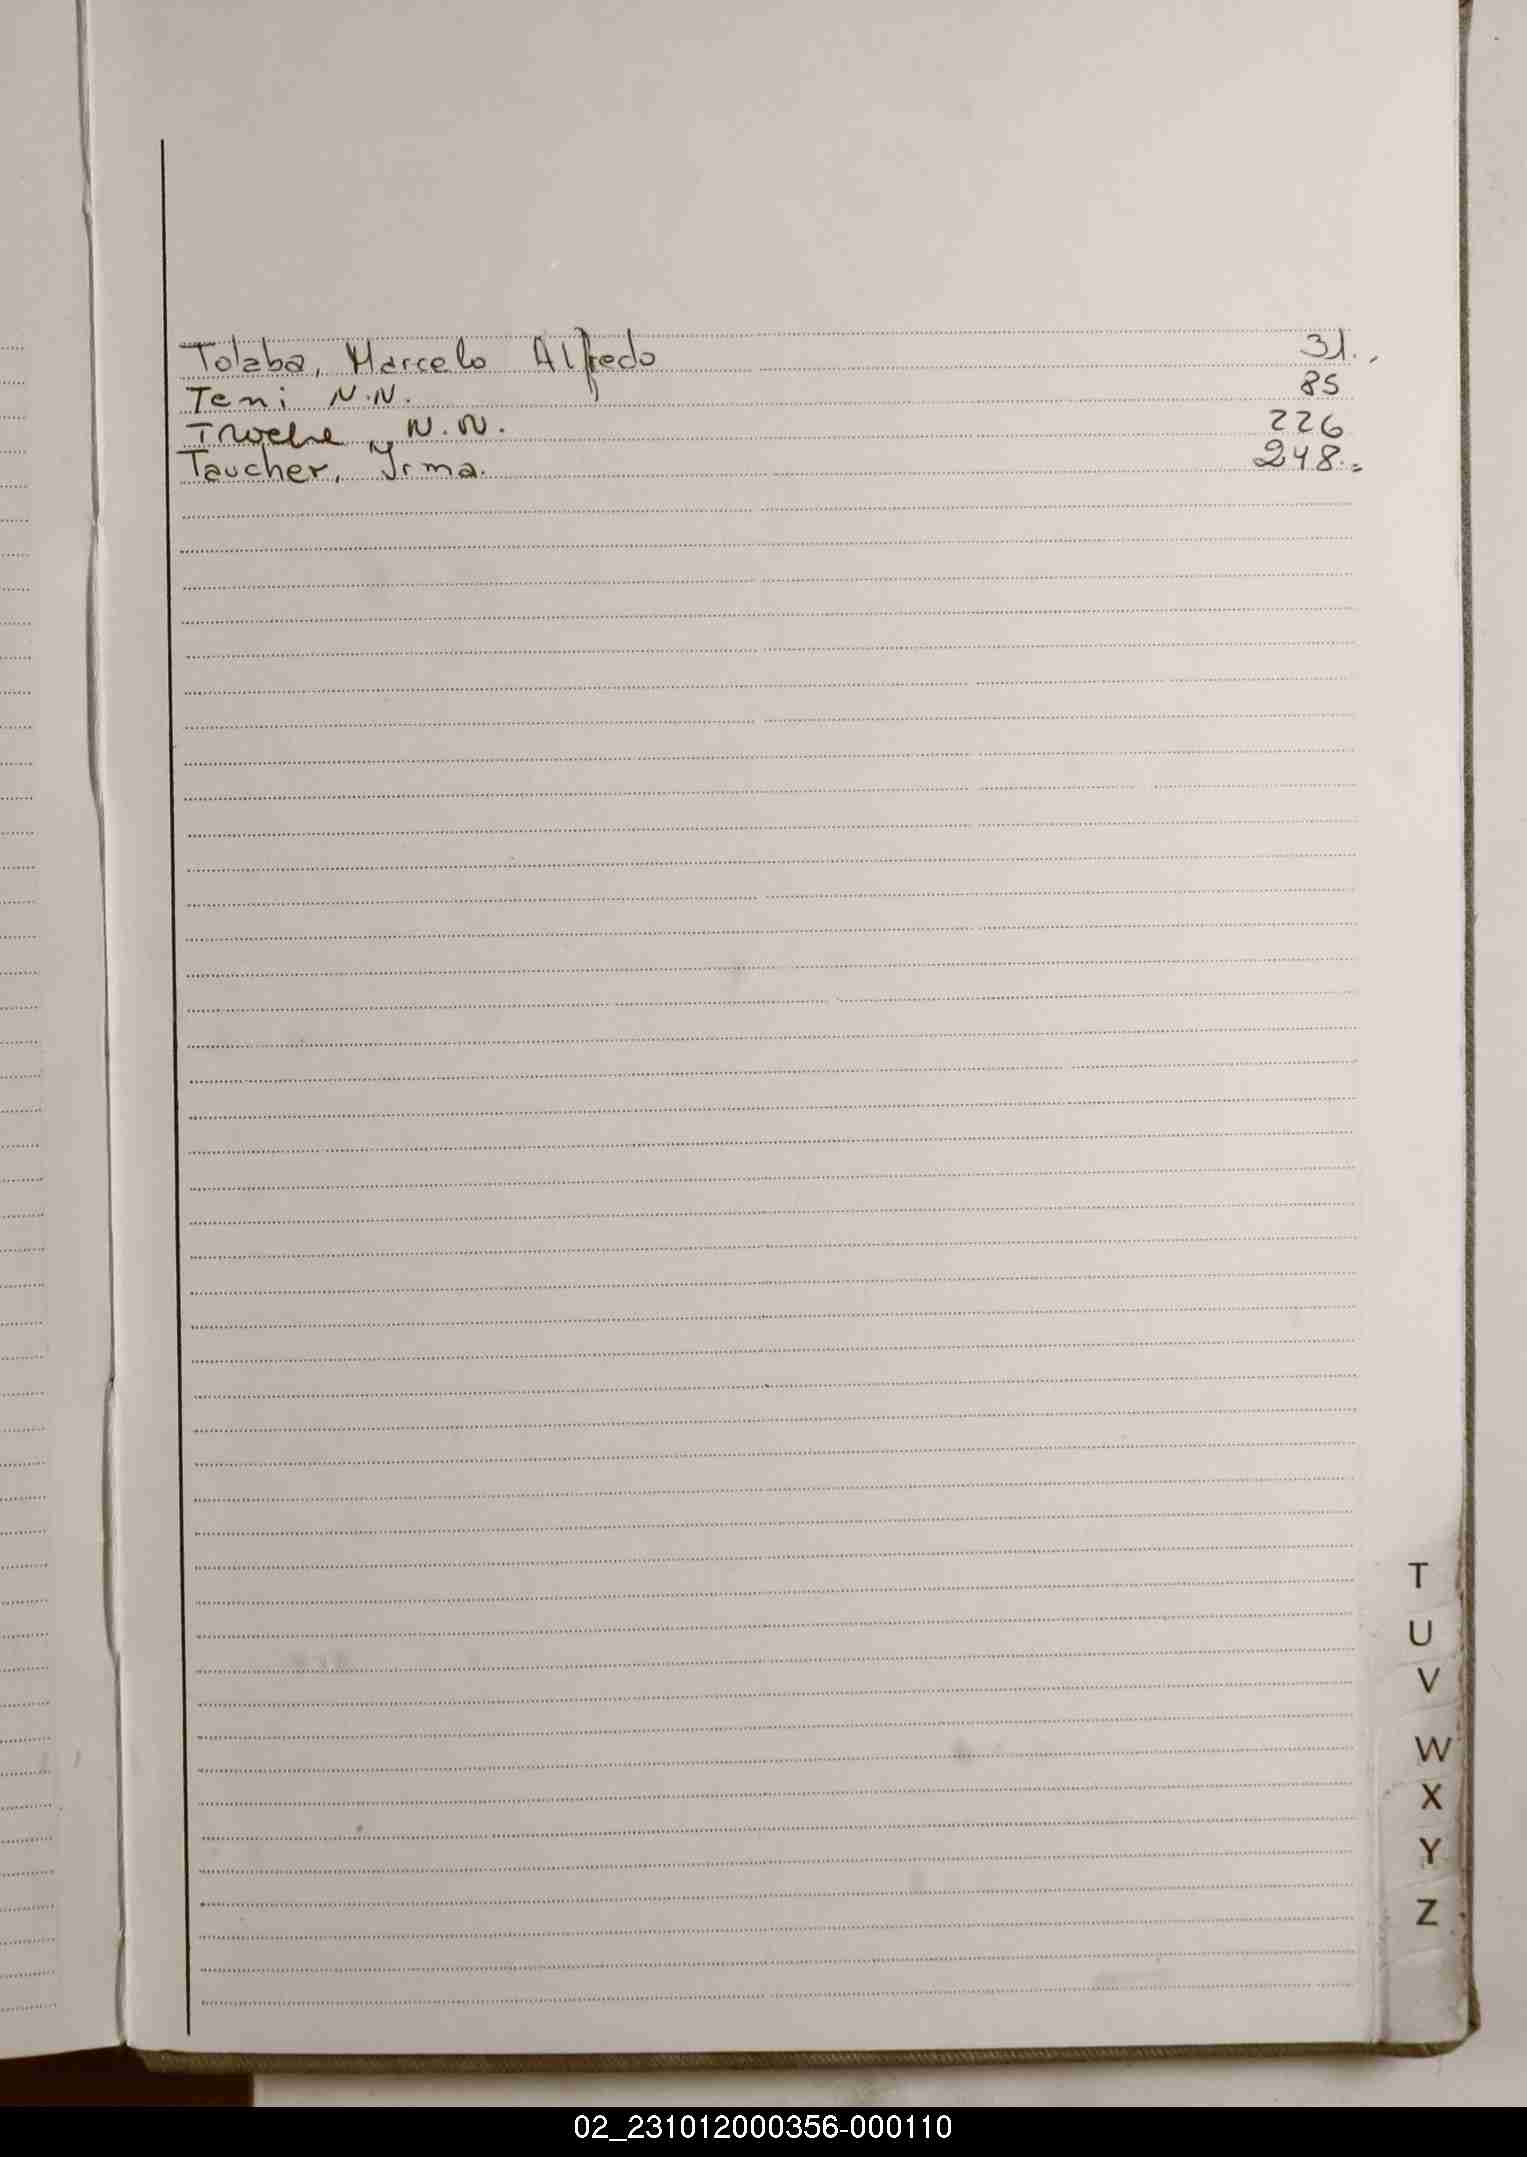 Tolaba, Marcelo Alfredo 31.,
Temi N.N. 85
N.N. 226
Taucher, Yrma. 248.=
T
U
V
W
X
Y
Z
02_231012000356-000110